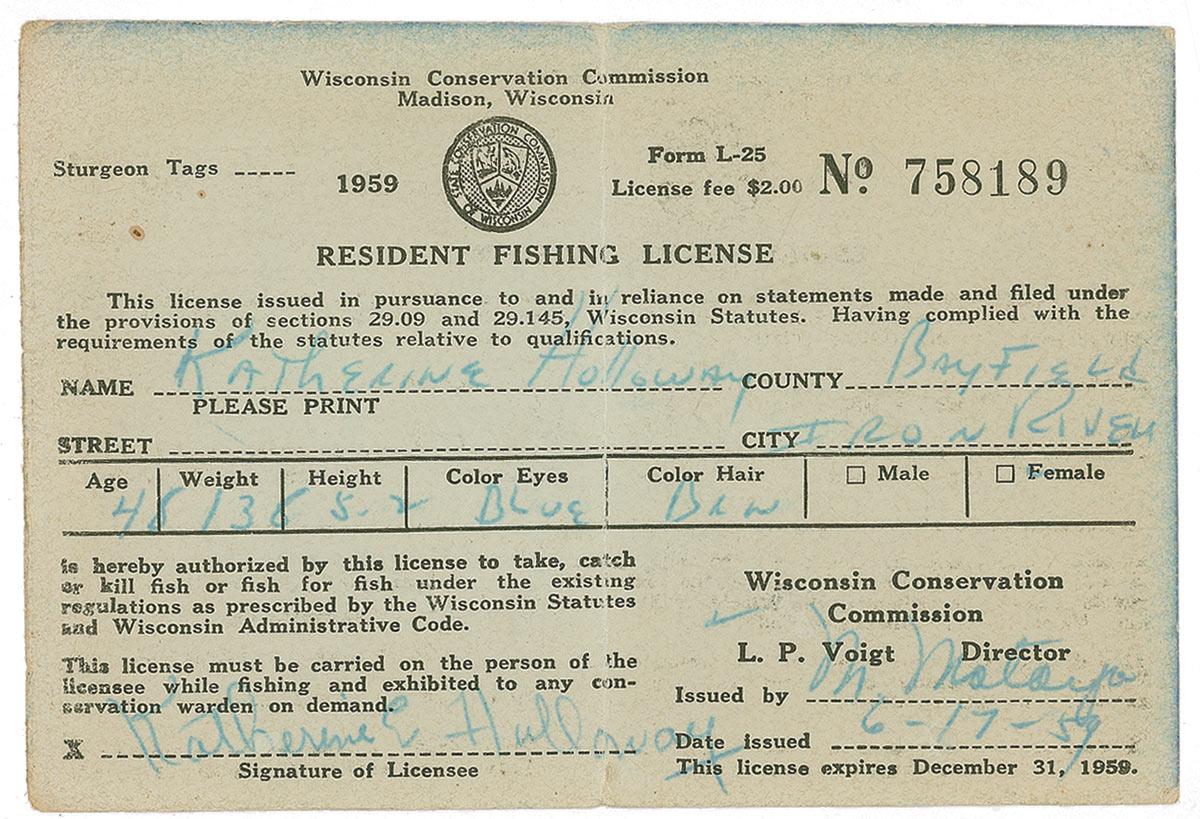 Wisconsin Conservation Commission
Madison, Wisconsin
STATE CONSERVATION COMMISSION OF WISCONSIN
Sturgeon Tags -----
1959
Form L-25
License fee $2.00
No. 758189
RESIDENT FISHING LICENSE
This license issued in pursuance to and in reliance on statements made and filed under
the provisions of sections 29.09 and 29.145, Wisconsin Statutes. Having complied with the
requirements of the statutes relative to qualifications.
NAME Katherine Holloway COUNTY Bayfield
PLEASE PRINT
STREET CITY Iron River
Age Weight Height Color Eyes Color Hair ☐ Male ☐ Female
5-2 Blue Brw
is hereby authorized by this license to take, catch
or kill fish or fish for fish under the existing
regulations as prescribed by the Wisconsin Statutes
and Wisconsin Administrative Code.
This license must be carried on the person of the
licensee while fishing and exhibited to any con-
servation warden on demand.
X Katherine Holloway
Signature of Licensee
Wisconsin Conservation
Commission
L. P. Voigt Director
Issued by M.
Date issued 6-17-59
This license expires December 31, 1959.